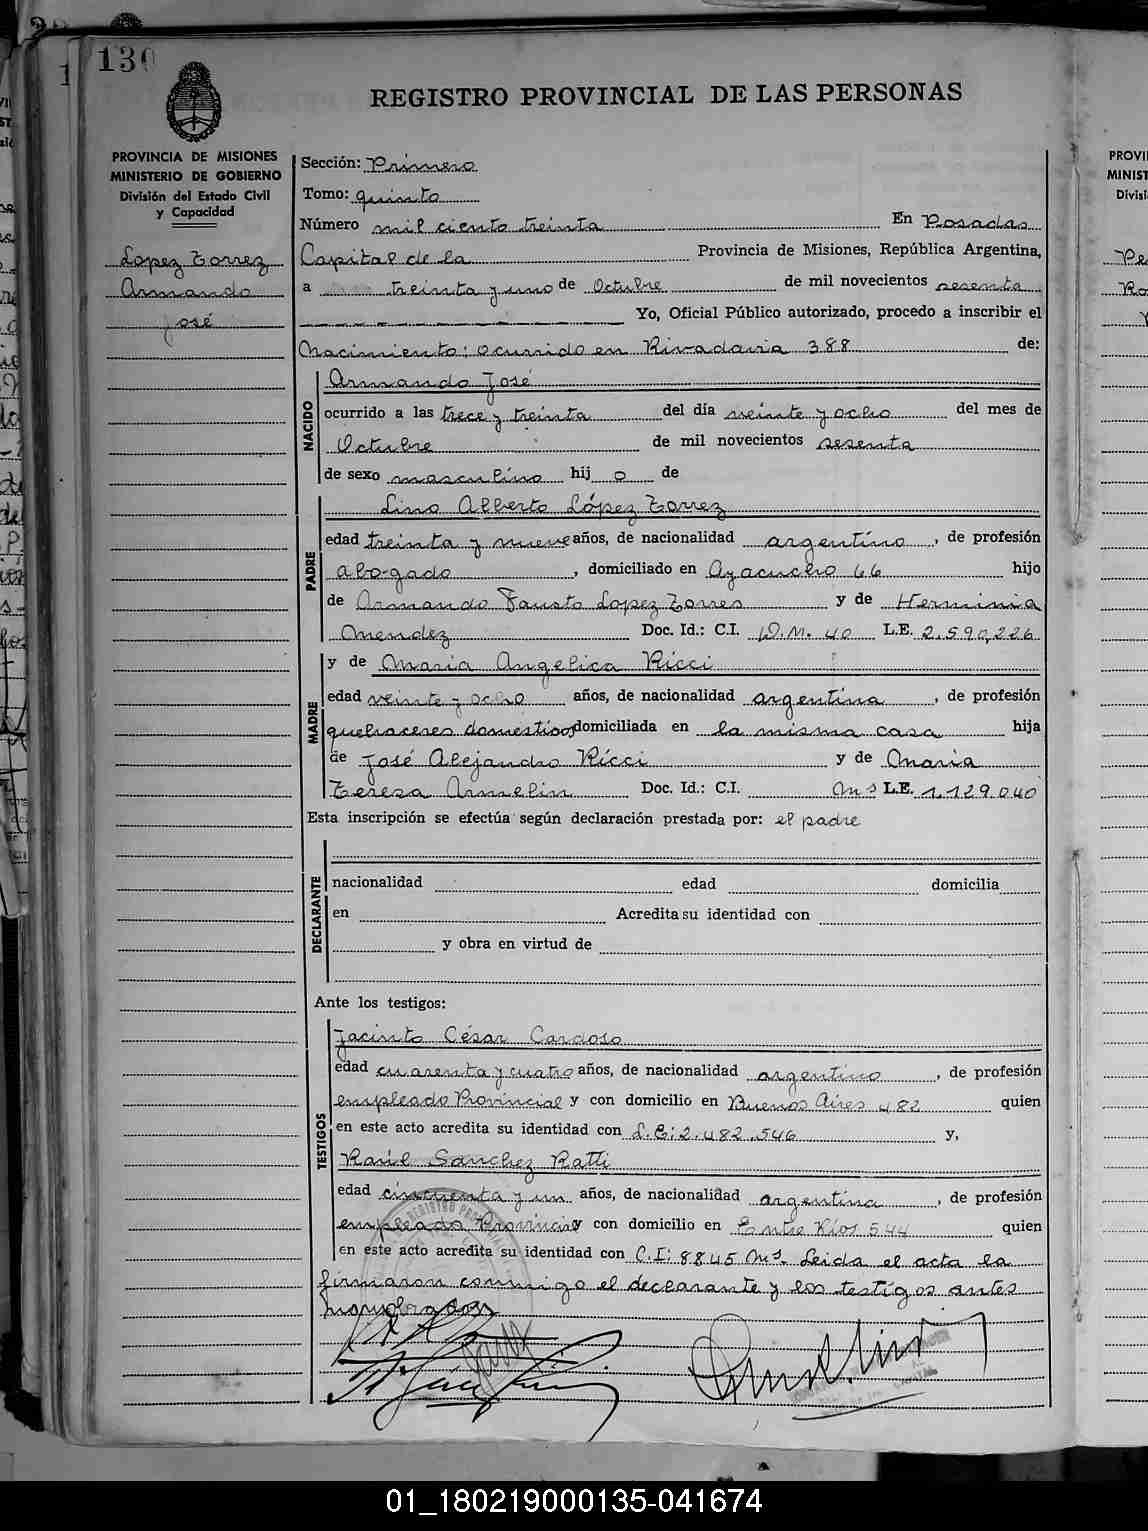 130
REGISTRO PROVINCIAL DE LAS PERSONAS
PROVINCIA DE MISIONES
MINISTERIO DE GOBIERNO
División del Estado Civil
y Capacidad
Lopez Torrez
Armando
José
Sección: Primero
Tomo: quinto
Número mil ciento treinta En Posadas
Capital de la Provincia de Misiones, República Argentina,
a treinta y uno de Octubre de mil novecientos sesenta
Yo, Oficial Público autorizado, procedo a inscribir el
Nacimiento: ocurrido en Rivadavia 388 de:
NACIDO
Armando José
ocurrido a las trece y treinta del día veinte y ocho del mes de
Octubre de mil novecientos sesenta
de sexo masculino hijo de
PADRE
Lino Alberto López Torrez
edad treinta y nueve años, de nacionalidad argentino, de profesión
abogado, domiciliado en Ayacucho 66 hijo
de Armando Fausto Lopez Torres y de Herminia
Mendez Doc. Id.: C.I. D.M. 40 L.E. 2.590,226
MADRE
y de Maria Angelica Ricci
edad veinte y ocho años, de nacionalidad argentina, de profesión
quehaceres domesticos domiciliada en la misma casa hija
de José Alejandro Ricci y de Maria
Teresa Armelin Doc. Id.: C.I. Ms L.E. 1.129.040
Esta inscripción se efectúa según declaración prestada por: el padre
DECLARANTE
nacionalidad edad domicilia
en Acredita su identidad con
y obra en virtud de
Ante los testigos:
TESTIGOS
Jacinto César Cardoso
edad cuarenta y cuatro años, de nacionalidad argentino, de profesión
empleado Provincial y con domicilio en Buenos Aires 482 quien
en este acto acredita su identidad con L.E: 2.482.546 y,
Raúl Sanchez Ratti
edad cincuenta y un años, de nacionalidad argentina, de profesión
empleado Provincial y con domicilio en Entre Ríos 544 quien
en este acto acredita su identidad con C.I: 8845 Ms. Leida el acta la
firmaron conmigo el declarante y los testigos antes
nombrados
01_180219000135-041674